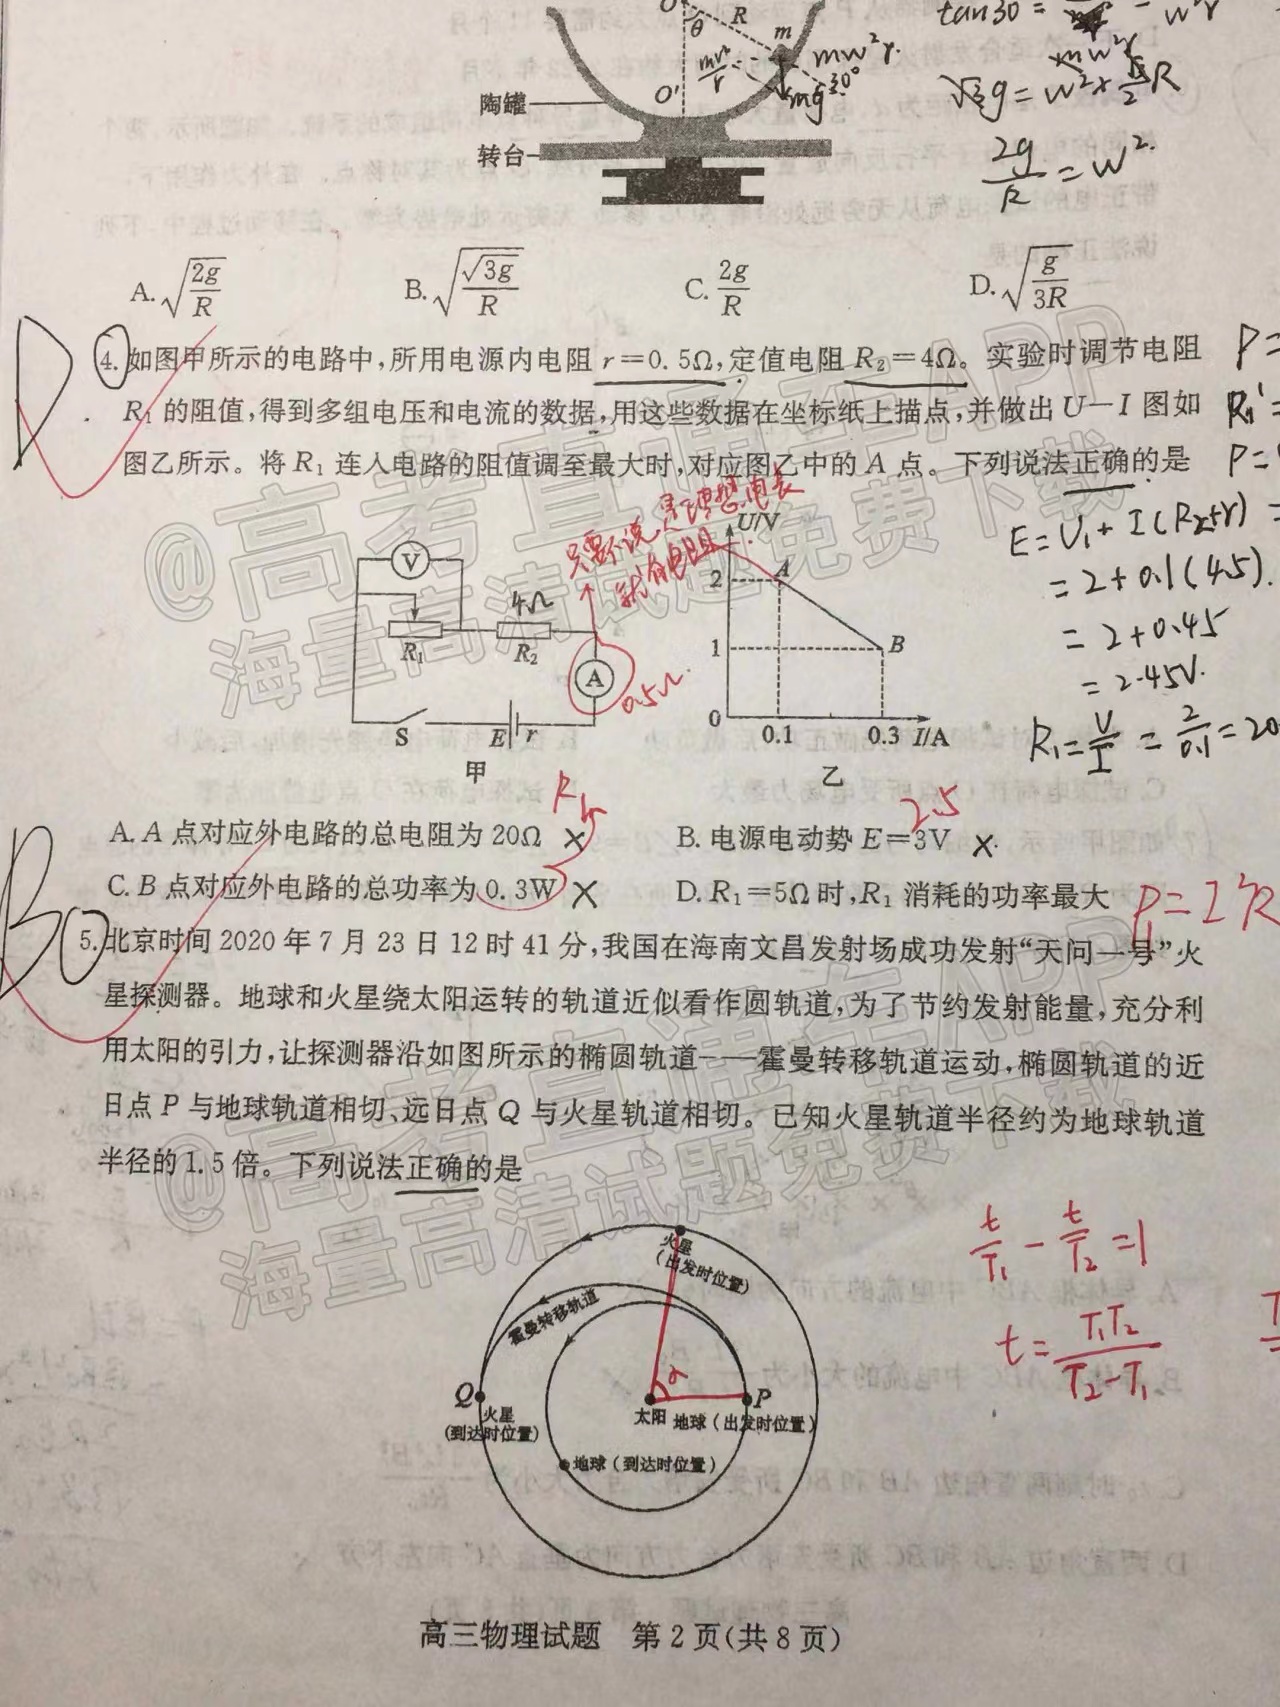 R
θ
m
mω²r.
O'
mg
30°
陶罐
转台
tan30=
√3g=ω²×
2g/R=ω².
A.√(2g/R) B.√(√3g/R) C.2g/R D.√(g/3R)
D
4.如图甲所示的电路中,所用电源内电阻 r=0.5Ω,定值电阻 R₂=4Ω。实验时调节电阻
R₁ 的阻值,得到多组电压和电流的数据,用这些数据在坐标纸上描点,并做出 U—I 图如
图乙所示。将 R₁ 连入电路的阻值调至最大时,对应图乙中的 A 点。下列说法正确的是
P=
R₁'=
P=
只要不说是理想电表
就有电阻
V
4Ω
R₁
R₂
A
0.5Ω
S
E
r
甲
U/V
2
A
1
B
0
0.1
0.3
I/A
乙
E=U₁+I(R₂+r)=
=2+0.1(4.5).
=2+0.45
=2.45V.
R₁=V/I=2/0.1=20
A.A 点对应外电路的总电阻为 20Ω × B.电源电动势 E=3V ×
2.5
C.B 点对应外电路的总功率为 0.3W × D.R₁=5Ω 时,R₁ 消耗的功率最大
P=I²R
B
5.北京时间 2020 年 7 月 23 日 12 时 41 分,我国在海南文昌发射场成功发射“天问一号”火
星探测器。地球和火星绕太阳运转的轨道近似看作圆轨道,为了节约发射能量,充分利
用太阳的引力,让探测器沿如图所示的椭圆轨道——霍曼转移轨道运动,椭圆轨道的近
日点 P 与地球轨道相切、远日点 Q 与火星轨道相切。已知火星轨道半径约为地球轨道
半径的 1.5 倍。下列说法正确的是
火星
(出发时位置)
霍曼转移轨道
α
Q
P
火星
(到达时位置)
太阳
地球(出发时位置)
地球(到达时位置)
t/T₁-t/T₂=1
t=T₁T₂/(T₂-T₁)
高三物理试题 第 2 页(共 8 页)
@高考直通车APP
海量高清试题免费下载
@高考直通车APP
海量高清试题免费下载